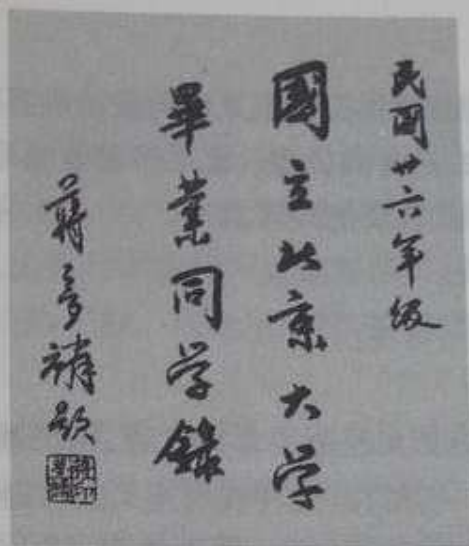 民國廿六年级
國立北京大学
畢業同学錄
蔣夢麟題